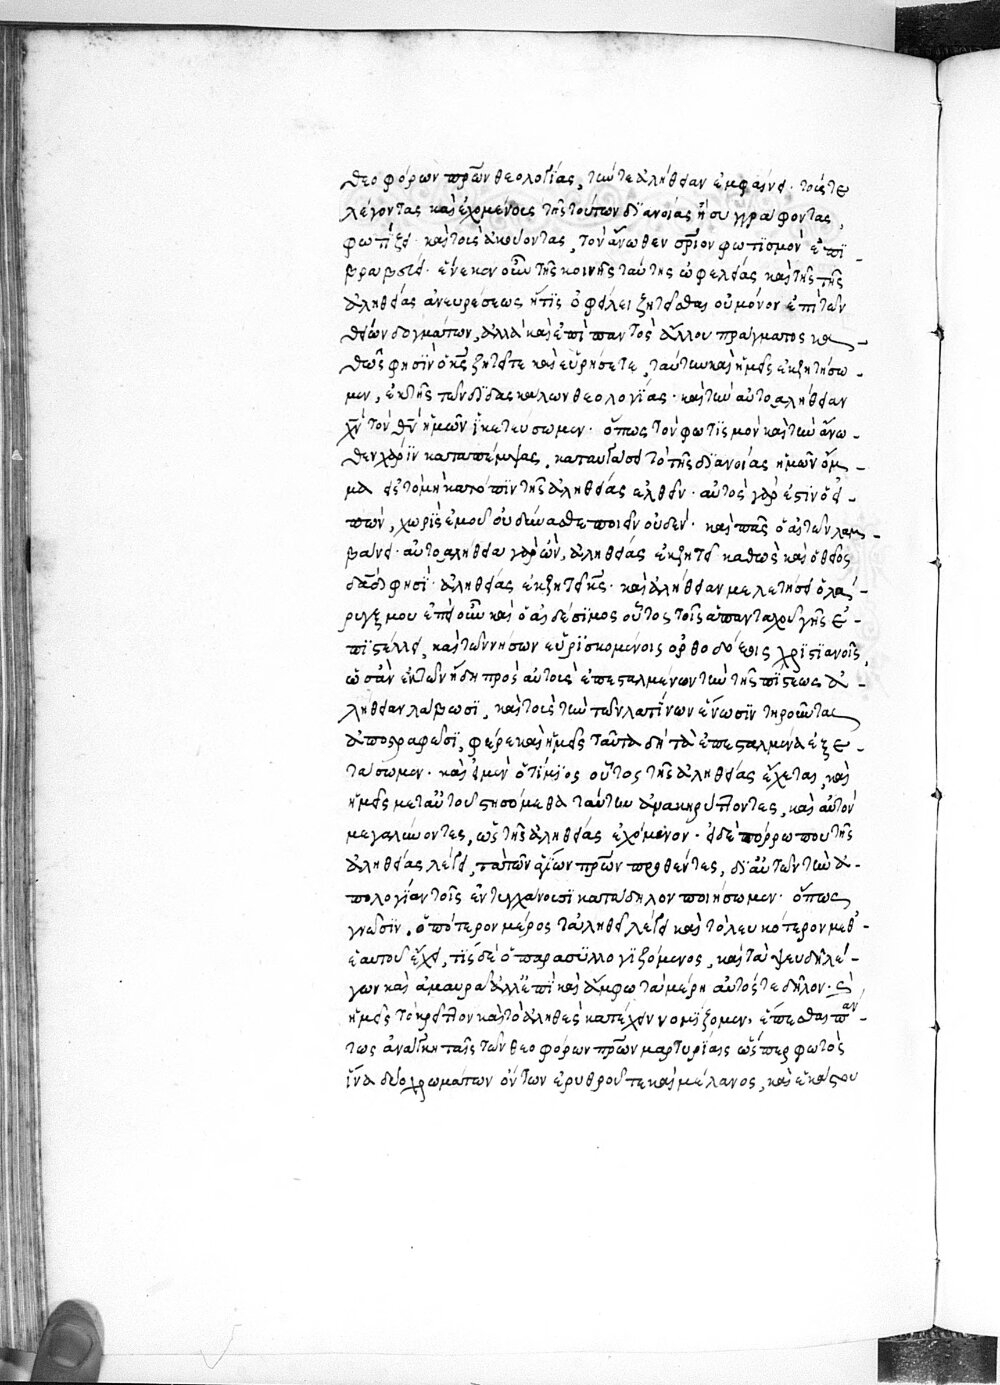 θεοφόρων πρων θεολογίας, τήν τε ἀλήθειαν ἐμφαίνει· τούς τε
λέγοντας καὶ ἐχομένους τῆς τούτων διανοίας ἢ συγγράφοντας,
φωτίζει· καὶ τοῖς ἀκούοντας, τὸν ἄνωθεν φωτισμὸν ἐπι-
βραβεύει· ἕνεκεν οὖν τῆς κοινῆς ταύτης ὠφελείας καὶ τῆς τῆς
ἀληθείας ἀνευρέσεως ἥτις ὀφείλει ζητεῖσθαι οὐ μόνον ἐπὶ τῶν
θείων δογμάτων, ἀλλὰ καὶ ἐπὶ παντὸς ἄλλου πράγματος κα-
θώς φησιν ὁ κς ζητεῖτε καὶ εὑρήσετε, ταύτην καὶ ἡμεῖς ἐκζητήσω-
μεν, ἐκ τῆς τῶν διδασκάλων θεολογίας· καὶ τὴν αὐτοαλήθειαν
χν τὸν θν ἡμῶν ἱκετεύσωμεν· ὅπως τὸν φωτισμὸν καὶ τὴν ἄνω-
θεν χάριν καταπέμψας, καταυγάσει τὸ τῆς διανοίας ἡμῶν ὄμ-
μα εἰς τὸ μὴ κατόπιν τῆς ἀληθείας ἐλθεῖν· αὐτὸς γάρ ἐστιν ὁ εἰ-
πών, χωρὶς ἐμοῦ οὐ δύνασθε ποιεῖν οὐδέν· καὶ πᾶς ὁ αἰτῶν λαμ-
βάνει· αὐτοαλήθεια γὰρ ὤν, ἀληθείας ἐκζητεῖ καθὼς καὶ ὁ θεῖος
δαδ φησί· ἀληθείας ἐκζητεῖ κς· καὶ ἀλήθειαν μελετήσει ὁ λά-
ρυγξ μου ἐπεὶ οὖν καὶ ὁ αἰδέσιμος οὗτος τοῖς ἁπανταχοῦ γῆς ἐ-
πιστέλλει, καὶ τῶν νήσων εὑρισκομένοις ὀρθοδόξοις χριστιανοῖς,
ὡσὰν ἐκ τῶν ἤδη πρὸς αὐτοὺς ἐπεσταλμένων τὴν τῆς πίστεως ἀ-
λήθειαν λάβωσι, καὶ τοὺς τὴν τῶν λατίνων ἕνωσιν τηροῦντας
ἀποστραφῶσι, φέρε καὶ ἡμεῖς ταῦτα δὴ τὰ ἐπεσταλμένα ἐξε-
τάσωμεν· καὶ εἰ μὲν ὁ τίμιος οὗτος τῆς ἀληθείας ἔχεται, καὶ
ἡμεῖς μετ αὐτοῦ στησόμεθα ταύτην ἀνακηρύττοντες, καὶ αὐτὸν
μεγαλύνοντες, ὡς τῆς ἀληθείας ἐχόμενον· εἰ δὲ πόρρω που τῆς
ἀληθείας λέγει, τὰ τῶν ἁγίων πρων προθέντες, δι αὐτῶν τὴν ἀ-
πολογίαν τοῖς ἐντυγχάνουσι κατάδηλον ποιήσωμεν· ὅπως
γνῶσιν, ὁπότερον μέρος τἀληθῆ λέγει καὶ τὸ λευκότερον μεθ᾽
ἑαυτοῦ ἔχει, τίς δὲ ὁ παρασυλλογιζόμενος, καὶ τὰ ψευδῆ λέ-
γων καὶ ἀμαυρά ἀλλ᾽ ἐπὶ καὶ ἄμφω τὰ μέρη αὐτός τε δῆλον· καὶ
ἡμεῖς τὸ κρεῖττον καὶ τὸ ἀληθὲς κατέχειν νομίζομεν, ἕπεσθαι πάν-
τως ἀνάγκη ταῖς τῶν θεοφόρων πρων μαρτυρίαις ὥσπερ φωτὸς
ἵνα δύο χρωμάτων ὄντων ἐρυθροῦ τε καὶ μέλανος, καὶ ἑκάστου